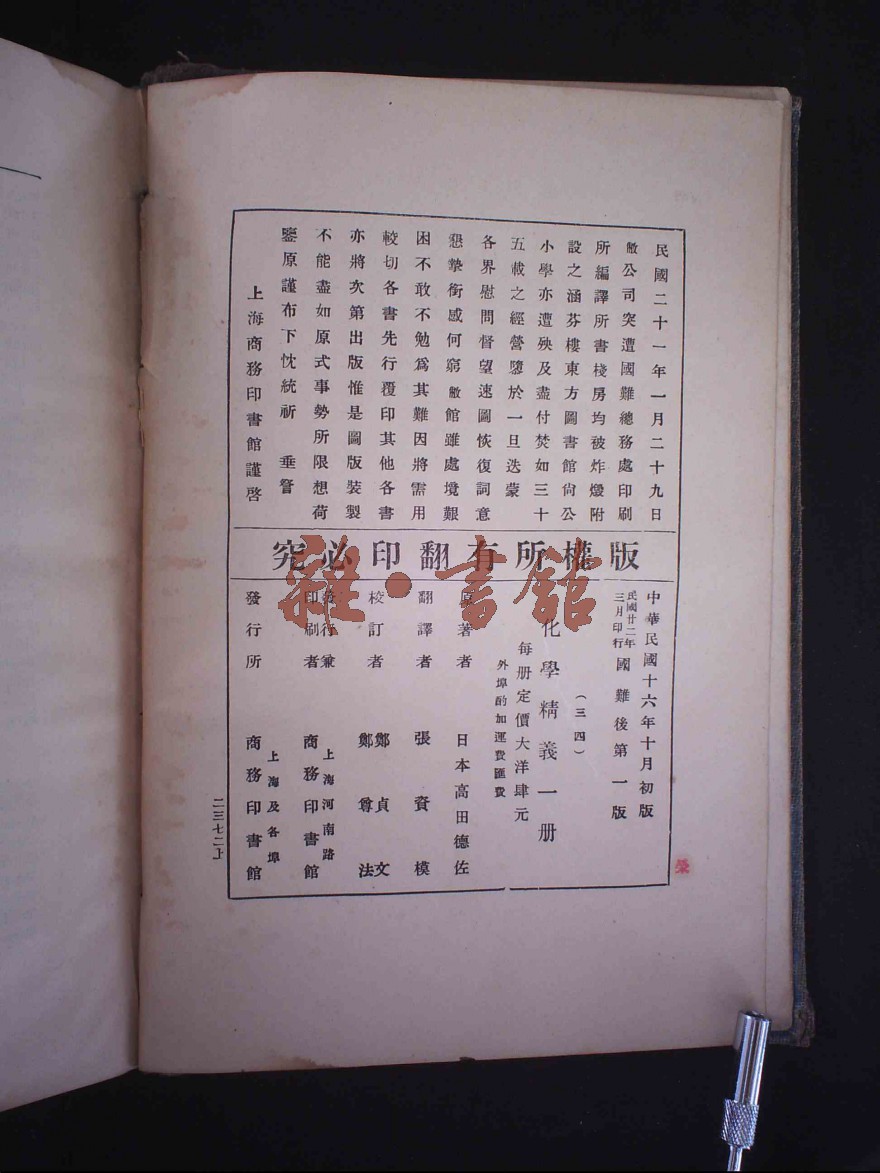 民國二十一年一月二十九日
敝公司突遭國難總務處印刷
所編譯所書棧房均被炸燬附
設之涵芬樓東方圖書館尙公
小學亦遭殃及盡付焚如三十
五載之經營隳於一旦迭蒙
各界慰問督望速圖恢復詞意
懇摯銜感何窮敝館雖處境艱
困不敢不勉爲其難因將需用
較切各書先行覆印其他各書
亦將次第出版惟是圖版裝製
不能盡如原式事勢所限想荷
鑒原謹布下忱統祈 垂詧
上海商務印書館謹啓
版權所有翻印必究
中華民國十六年十月初版
民國廿二年三月印行 國難後第一版
(三四)
化學精義一册
每册定價大洋肆元
外埠酌加運費匯費
原著者 日本高田德佐
翻譯者 張資模
校訂者 鄭貞文
鄭尊法
發行兼印刷者 上海河南路
商務印書館
發行所 上海及各埠
商務印書館
二三七二上
雜·書館